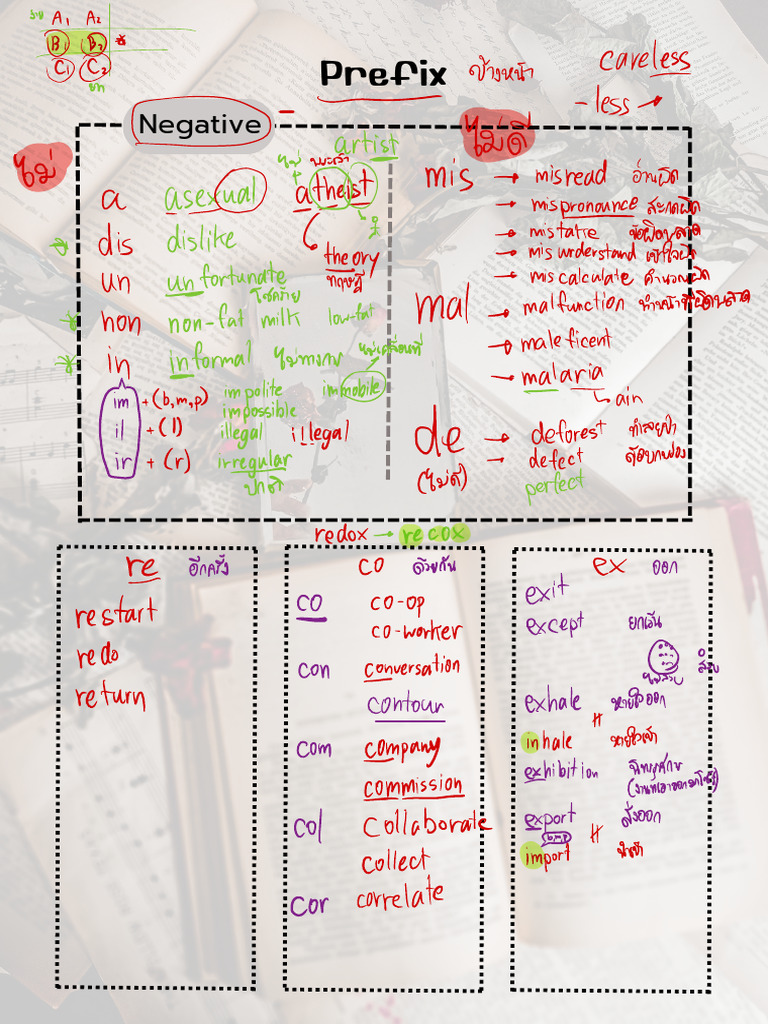 ง่าย A₁ A₂
B₁ B₂
C₁ C₂
ยาก
Prefix ข้างหน้า
careless
-less →
Negative -
ไม่
ไม่ดี
artist
ไม่ พระเจ้า
a asexual atheist
theory
ทฤษฎี
dis dislike
un unfortunate
โชคร้าย
non non-fat milk low-fat
in informal ไม่ทางการ ไม่เคลื่อนที่
im + (b,m,p) impolite immobile
impossible
il + (l) illegal illegal
ir + (r) irregular
ปกติ
mis → misread อ่านผิด
→ mispronounce สะกดผิด
→ mistake ข้อผิดพลาด
→ misunderstand เข้าใจผิด
→ miscalculate คำนวณผิด
mal → malfunction ทำหน้าที่ผิดพลาด
→ maleficent
→ malaria
ain
de → deforest ทำลายป่า
→ defect ข้อบกพร่อง
(ไม่ดี) perfect
redox → recox
re อีกครั้ง
restart
redo
return
co ด้วยกัน
co co-op
co-worker
con conversation
contour
com company
commission
col collaborate
collect
cor correlate
ex ออก
exit
except ยกเว้น
exhale หายใจออก
inhale หายใจเข้า
exhibition นิทรรศการ
export ส่งออก
b,m,p
import นำเข้า